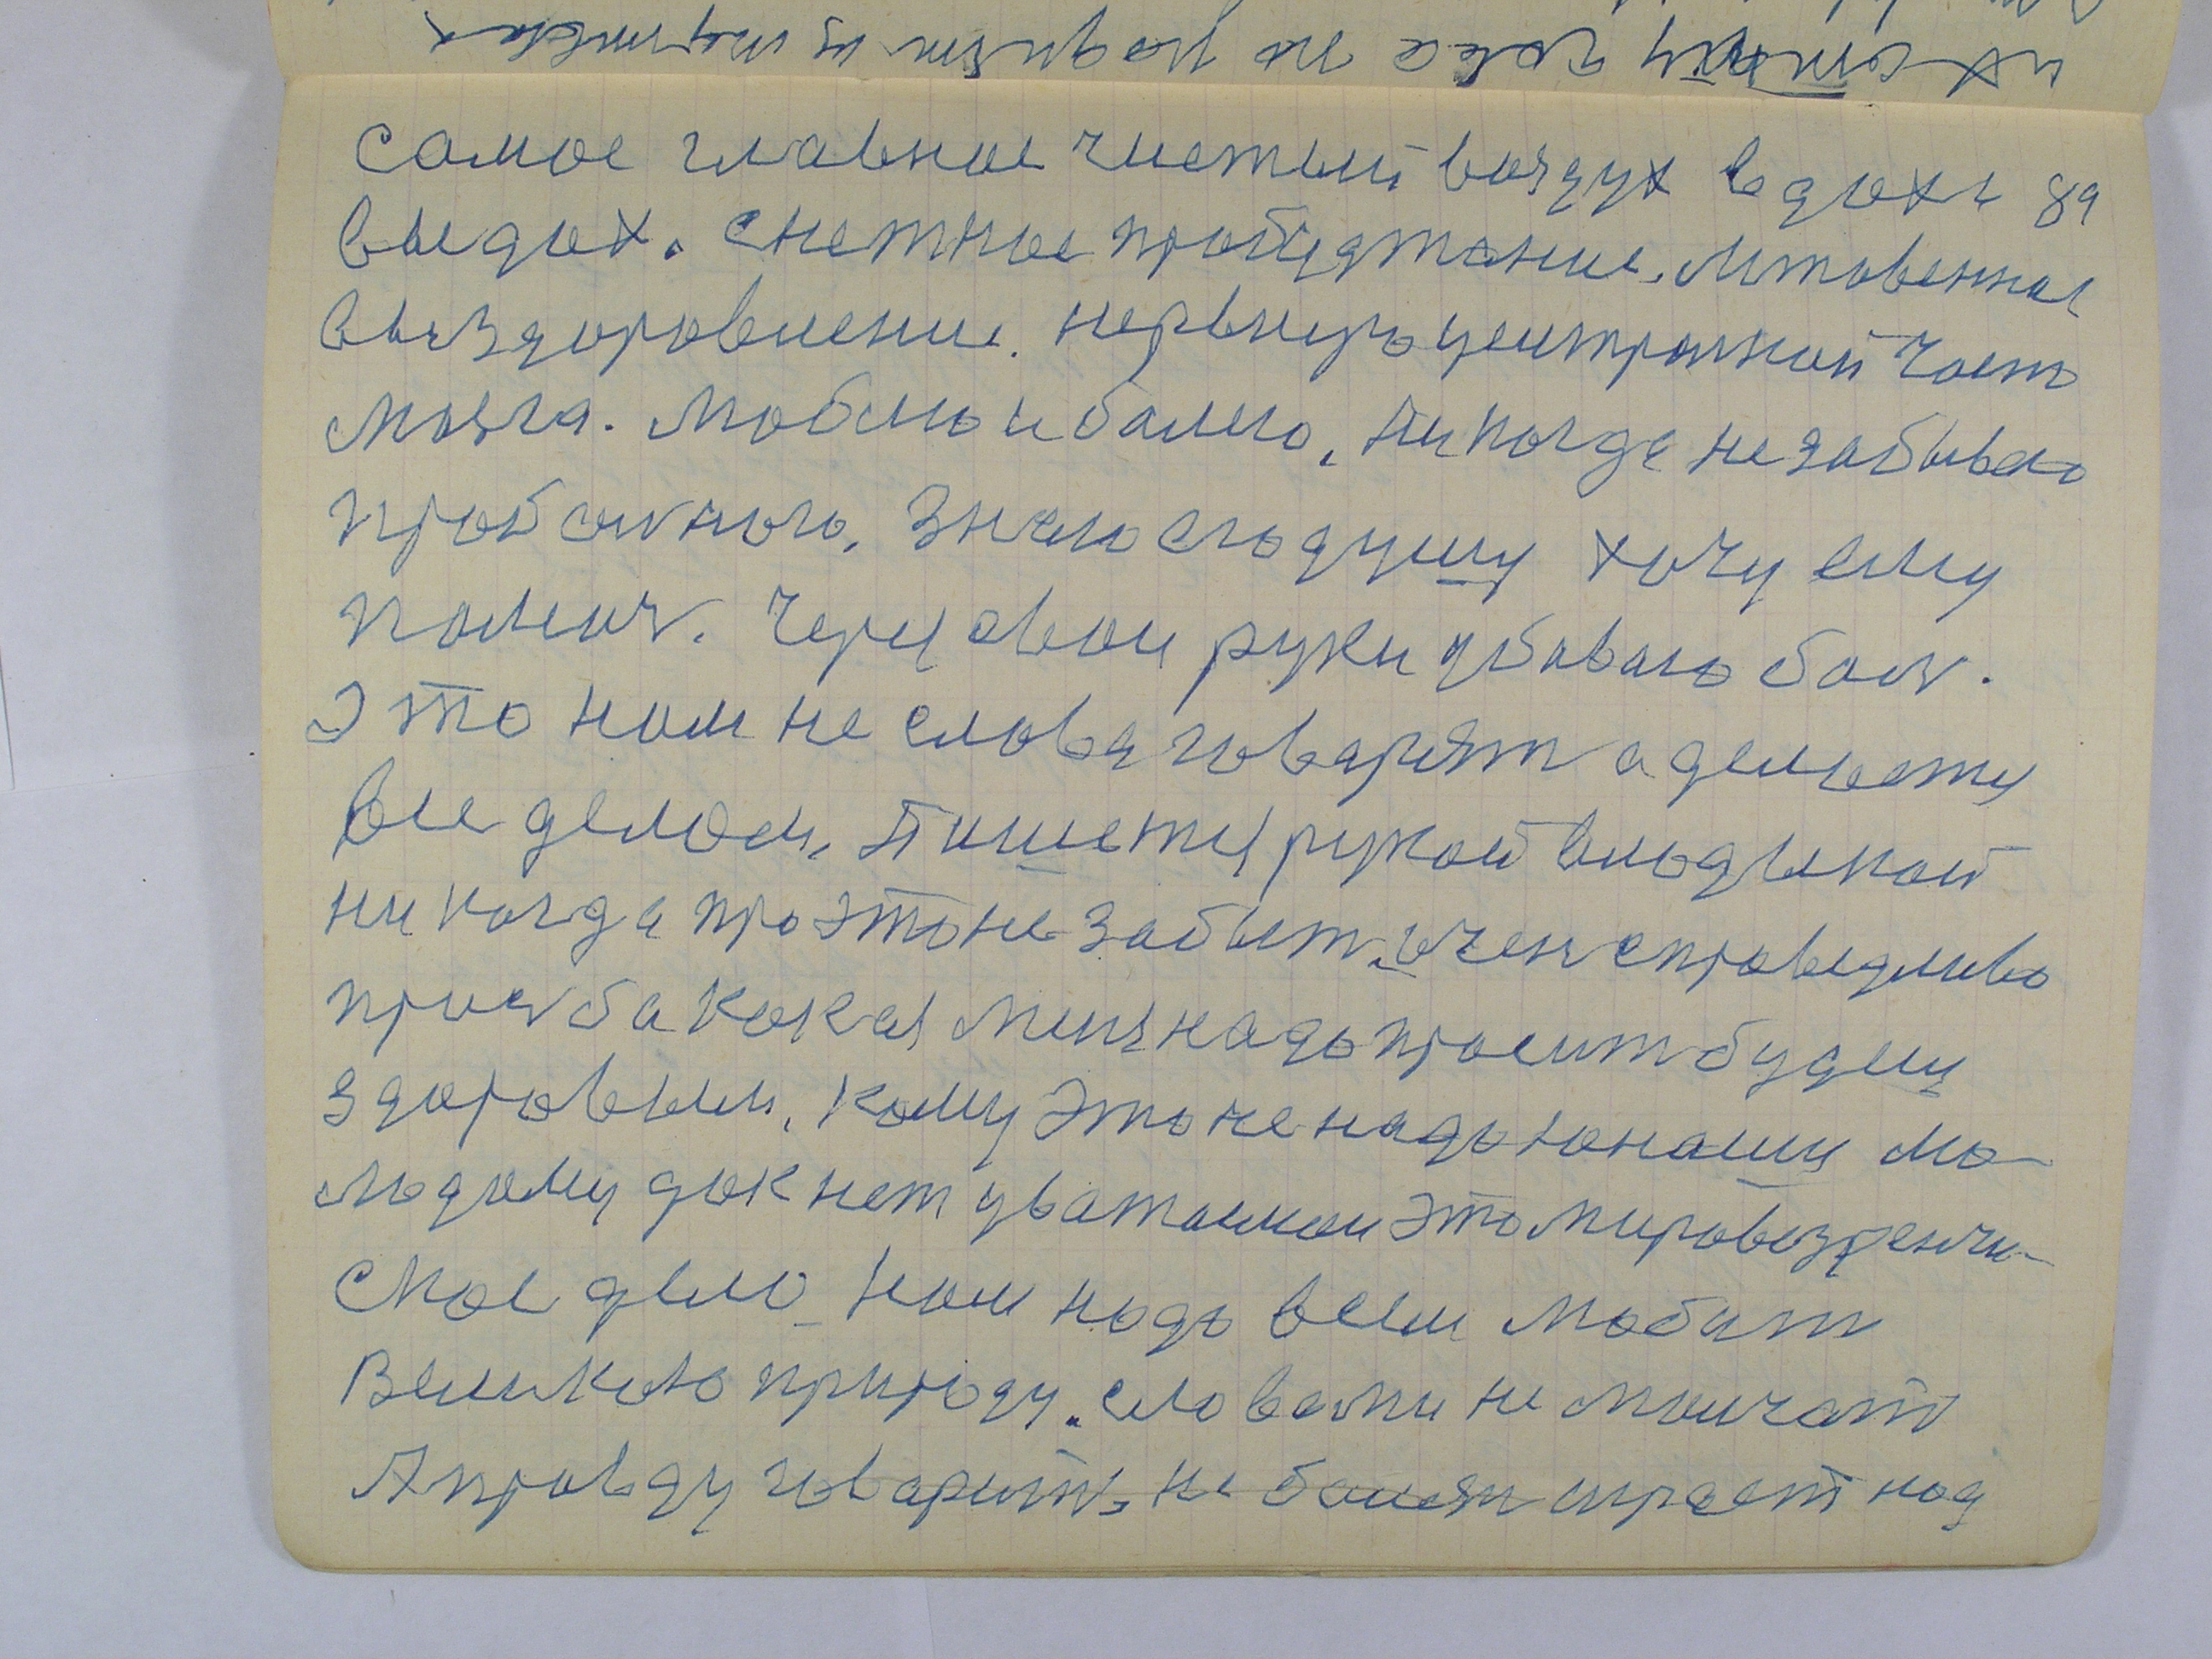 самое главное чистый воздух вдох и 89
выдох. снежное пробуждание. Мгновенное
выздоровление. нервную центральной част
мозга. люблю и болею. никогда не забываю
про больного. Знаю его душу хочу ему
помоч. Через свои руки убиваю бол.
Это нам не слова говарят а делается
все делом. Пишется рукой владыкой
никогда про это не забыт. очен справедливо
прозба какая меня надо просит будеш
здоровым. кому это не надо юнаши мо-
лодому дак нет уважаемои это мировоззренчи-
ское дело. Нам надо всем любит
Великою природу. словами не молчат
А правду говарит. не болезн играет над